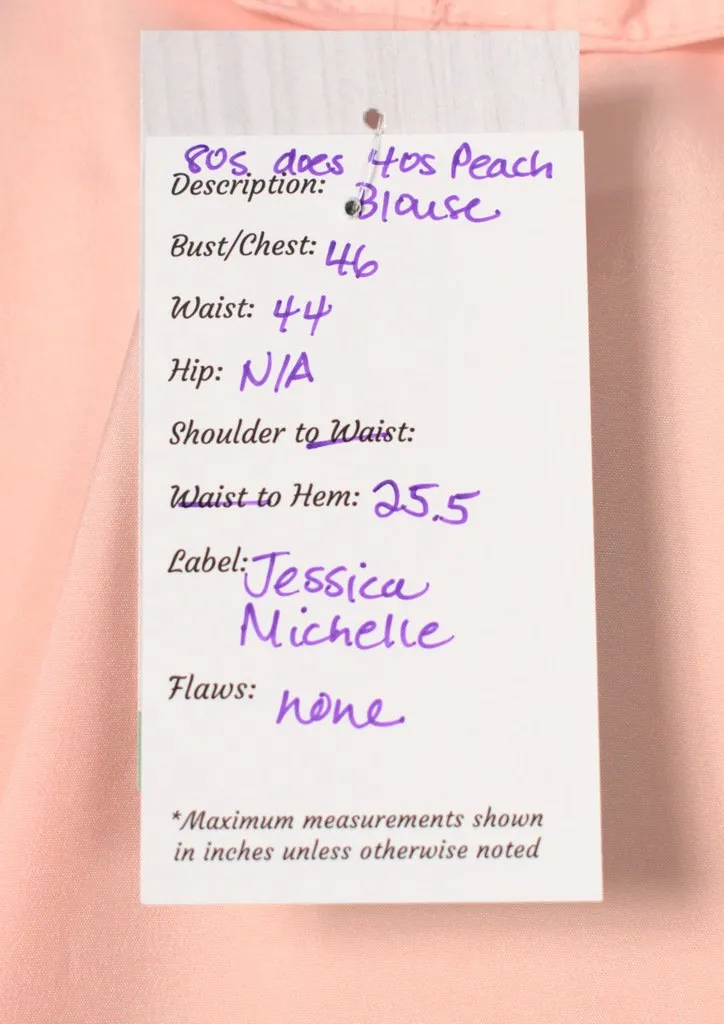 80s does 40s Peach
Description: Blouse
Bust/Chest: 46
Waist: 44
Hip: N/A
Shoulder to Waist:
Waist to Hem: 25.5
Label: Jessica
Michelle
Flaws: none
*Maximum measurements shown
in inches unless otherwise noted